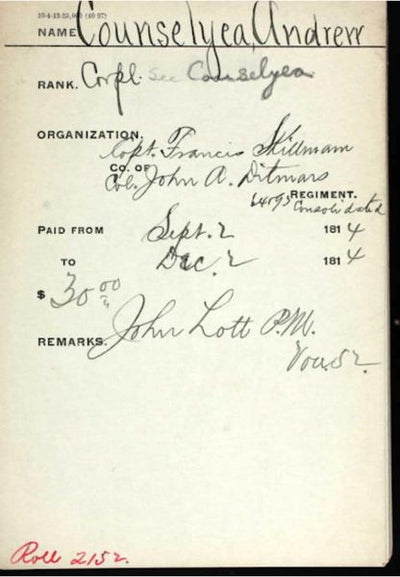 NAME Counselyea, Andrew
RANK. Corpl. see Counselyea
ORGANIZATION.
Capt. Francis Skillmam
CO. OF
Col. John A. Ditmars
64&93 REGIMENT.
Consolidated
PAID FROM Sept. 2 1814
TO Dec. 2 1814
$ 30 00
REMARKS. John Lott P.M.
Vou. 52.
Roll 2152.